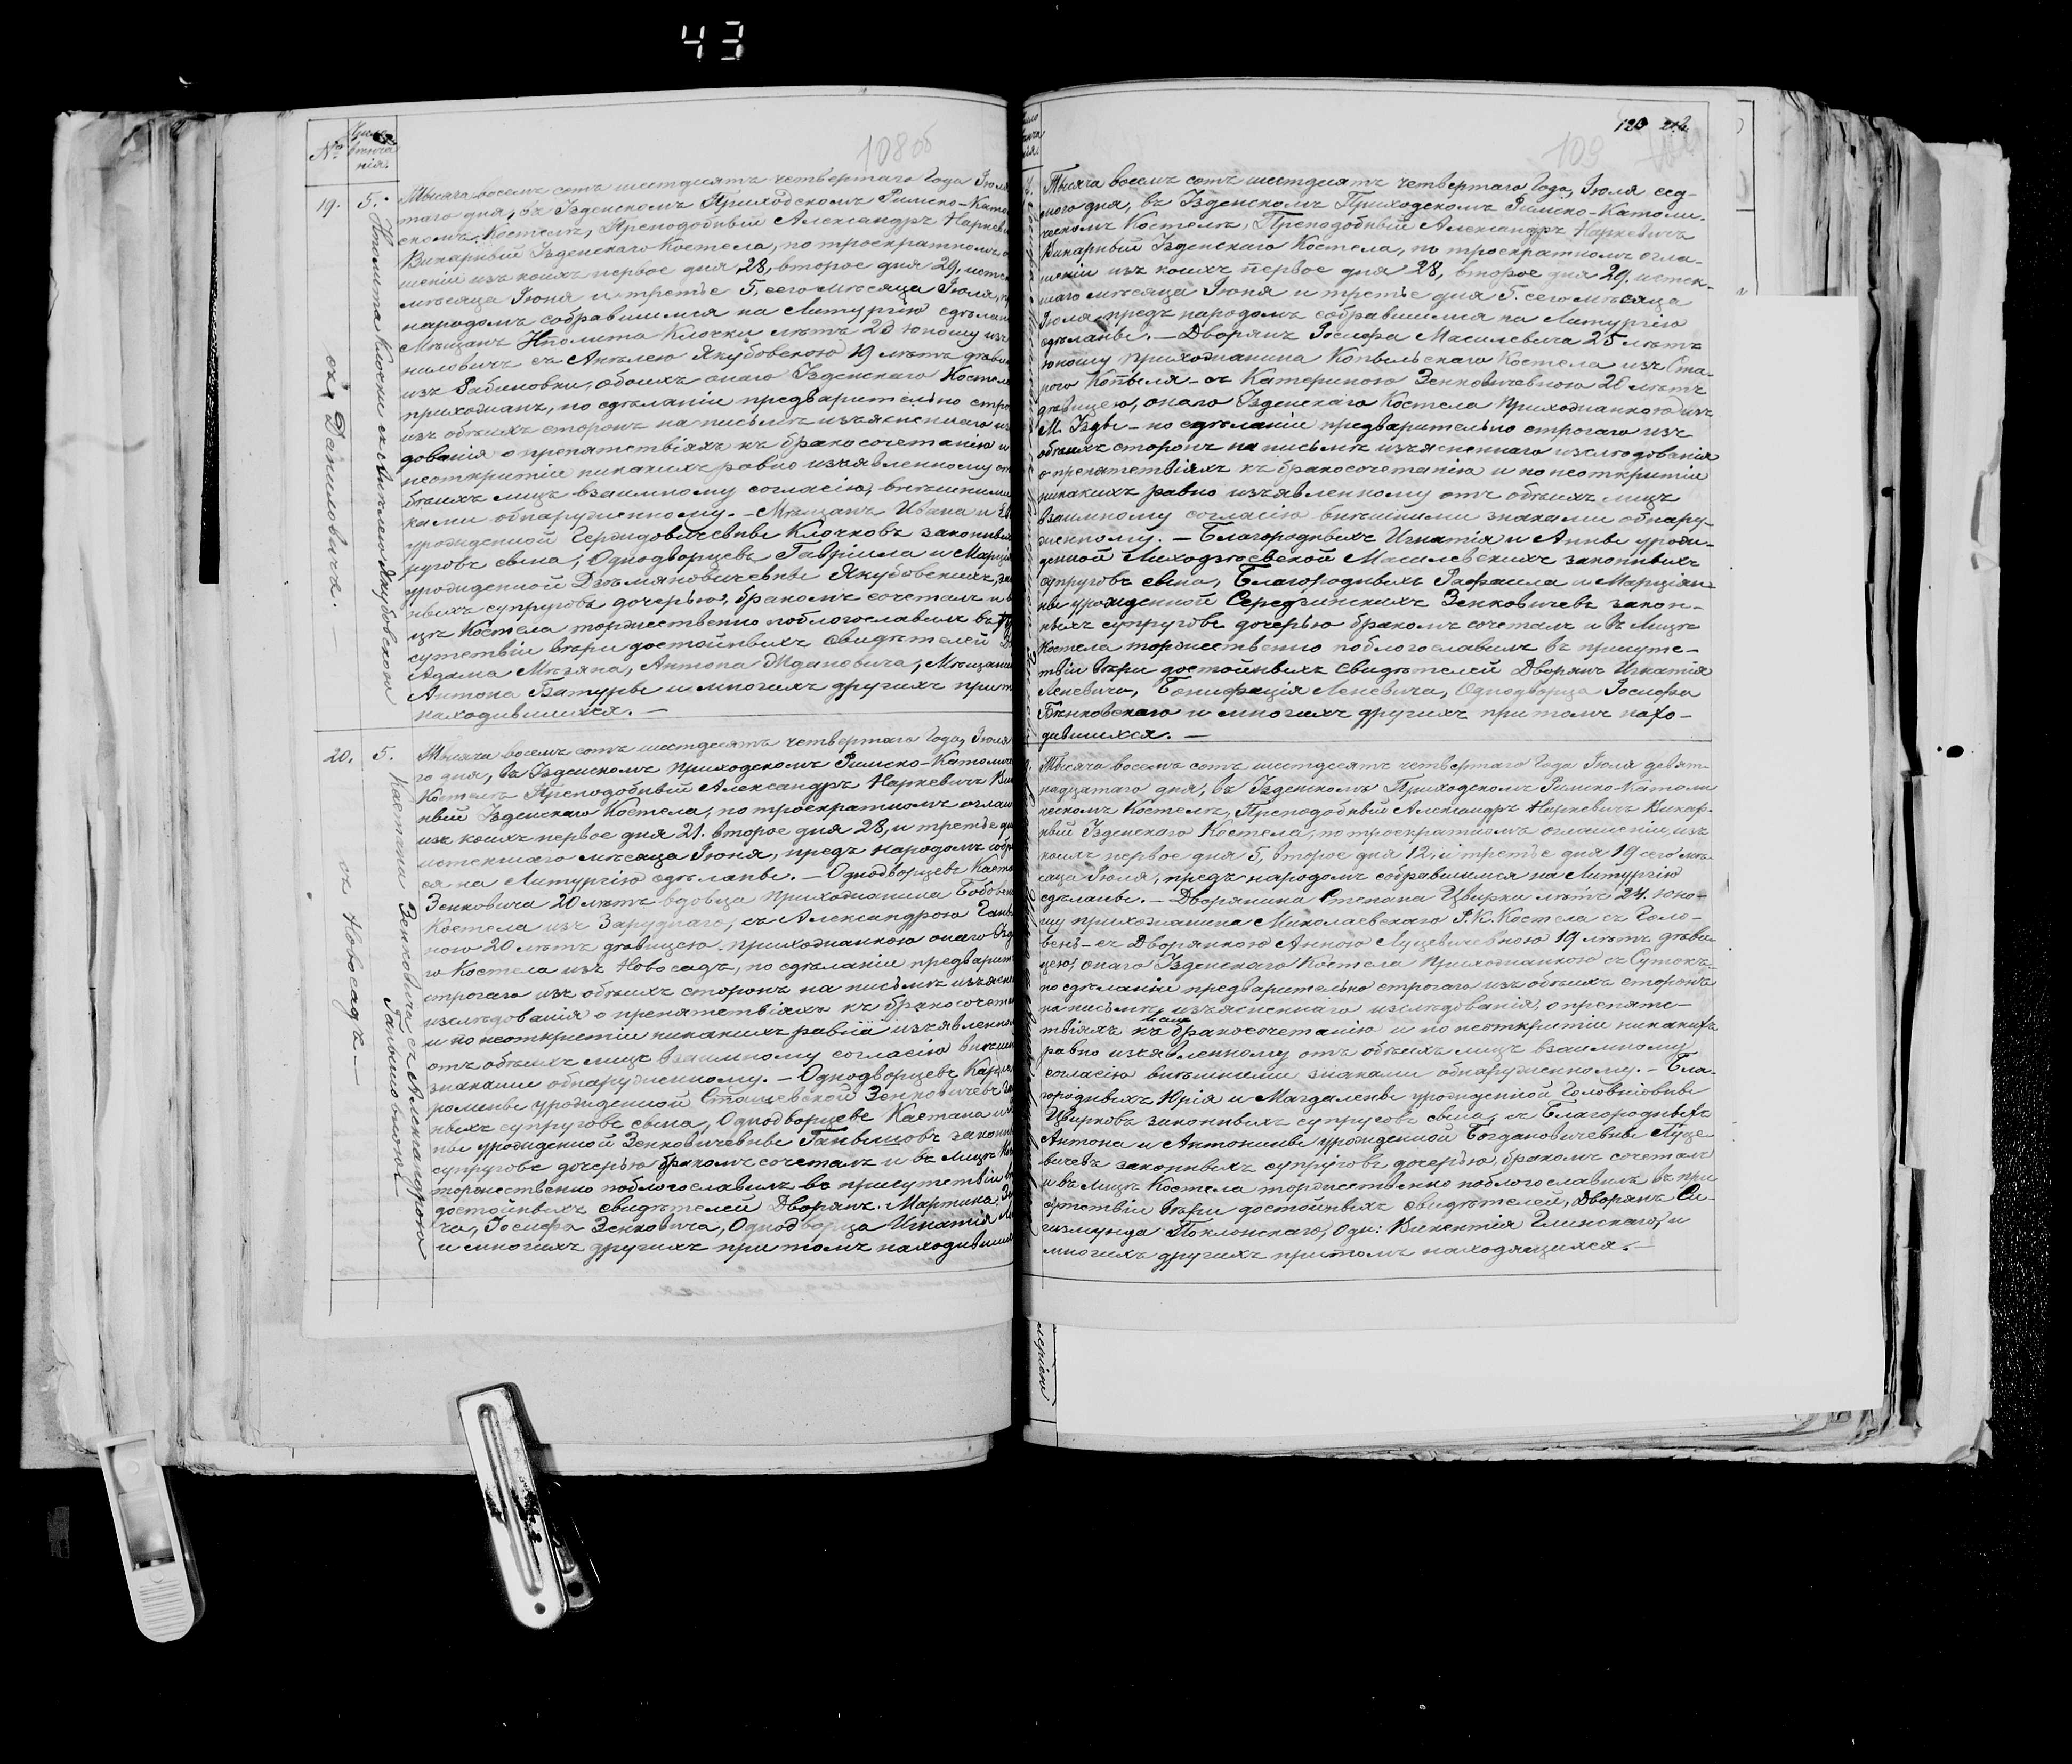 43
108 об
№
Число
венча
нія.
19.
5.
Ипполита Клочки съ Анѣлею Якубовскою
съ Даниловичъ.
Тысяча восемъ сотъ шестдесятъ четвертаго Года Іюля
таго дня, въ Узденскомъ Приходскомъ Римско-Като
скомъ Костелѣ, Преподобный Александръ Наркеви
Викарный Узденскаго Костела, по троекратномъ о
шеніи изъ коихъ первое дня 28, второе дня 29, истек
мѣсяца Іюня и третье 5, сего мѣсяца Іюля,
народомъ собравшимся на Литургію сдѣлан
Мѣщанъ Ипполита Клочки лѣтъ 23 юношу изъ
ниловичъ съ Анѣлею Якубовскою 19 лѣтъ дѣви
изъ Рабиновки, обоихъ онаго Узденскаго Костела
прихожанъ, по сдѣланіи предварительно стро
изъ обѣихъ сторонъ на письмѣ изъясненнаго из
дованія о препятствіяхъ къ бракосочетанію и
неоткрытіи никакихъ равно изъявленному от
бѣихъ лицъ взаимному согласію, внѣшними
ками обнаруженному. — Мѣщанъ Ивана и
урожденной Герзидовичевны Клочковъ законных
руговъ сына, Однодворцевъ Гавріила и Марці
урожденной Дземяновичевны Якубовскихъ, за
ныхъ супруговъ дочерью, бракомъ сочеталъ и в
цѣ Костела торжественно поблогославилъ въ п
сутствіи вѣри достойныхъ свидѣтелей
Адама Мѣзяна, Антона Ждановича, Мѣщанина
Антона Батуры и многихъ другихъ притомъ
находившихся. —
20.
5.
Каетана Зенковича съ Александрою
Ганвиловною
съ Новосадъ —
Тысяча восемъ сотъ шестдесятъ четвертаго Года, Іюля
го дня, въ Узденскомъ приходскомъ Римско-Католиче
Костелѣ Преподобный Александръ Наркевичъ Вик
ный Узденскаго Костела, по троекратномъ оглаш
изъ коихъ первое дня 21. второе дня 28, и третье дня
истекшаго мѣсяца Іюня, предъ народомъ собр
ся на Литургію сдѣланы. — Однодворцевъ Каета
Зенковича 20 лѣтъ вдовца Прихожанина Бобовн
Костела изъ Заруднаго, съ Александрою Ганви
ною 20 лѣтъ дѣвицею прихожанкою онаго Узд
го Костела изъ Новосадъ, по сдѣланіи предварит
строгаго изъ обѣихъ сторонъ на письмѣ изъясн
изслѣдованія о препятствіяхъ къ бракосочета
и по неоткрытіи никакихъ равно изъявленном
отъ обѣихъ лицъ взаимному согласію внѣшн
знаками обнаруженному. — Однодворцевъ
ромены урожденной Сташевской Зенковичевъ за
ныхъ супруговъ сына, Однодворцевъ Каетана и
ны урожденной Зенковичевны Ганвиловъ законн
супруговъ дочерью бракомъ сочеталъ и въ Лицѣ Кос
торжественно поблогославилъ въ присутствіи вѣ
достойныхъ свидѣтелей Дворянъ. Мартина Зе
ча, Іосифа Зенковича, Однодворца Игнатія
и многихъ другихъ притомъ находивших
109
Тысяча восемъ сотъ шестдесятъ четвертаго Года, Іюля сед-
мого дня, въ Узденскомъ Приходскомъ Римско-Католи-
ческомъ Костелѣ, Преподобный Александръ Наркевичъ
Викарный Узденскаго Костела, по троекратномъ огла-
шеніи изъ коихъ первое дня 28, второе дня 29. истек-
шаго мѣсяца Іюня и третье дня 5. сего мѣсяца
Іюля, предъ народомъ собравшимся на Литургію
сдѣланы. — Дворянъ Іосифа Масилевича 25 лѣтъ
юношу прихожанина Копыльскаго Костела изъ Ста-
рого Копыля — съ Катериною Зенковичевною 20 лѣтъ
дѣвицею, онаго Узденскаго Костела Прихожанкою изъ
М. Узды — по сдѣланіи предварительно строгаго изъ
обѣихъ сторонъ на письмѣ изъясненнаго изслѣдованія
о препятствіяхъ къ бракосочетанію и по неоткрытіи
никакихъ равно изъявленному отъ обѣихъ лицъ
взаимному согласію внѣшними знаками обнару-
женному. — Благородныхъ Игнатія и Анны урож-
денной Лиходзѣевской Масилевскихъ законныхъ
супруговъ сына, Благородныхъ Рафаила и Марціян-
ны урожденной Середзинскихъ Зенковичевъ закон-
ныхъ супруговъ дочерью бракомъ сочеталъ и въ Лицѣ
Костела торжественно поблогославилъ въ присутс-
твіи вѣри достойныхъ Свидѣтелей Дворянъ Игнатія
Леневича, Бонифація Леневича, Однодворца Іосифа
Бѣнковскаго и многихъ другихъ притомъ нахо-
дившихся. —
Тысяча восемъ сотъ шестдесятъ четвертаго Года Іюля девят-
надцатаго дня, въ Узденскомъ Приходскомъ Римско-Католи
ческомъ Костелѣ, Преподобный Александръ Наркевичъ Викар-
ный Узденскаго Костела, по троекратномъ оглашеніи, изъ
коихъ первое дня 5, второе дня 12, и третье дня 19 сего мѣ-
сяца Іюля, предъ народомъ собравшимся на Литургію
сдѣланы. — Дворянина Степана Цвирки лѣтъ 24. юно-
шу прихожанина Миколаевскаго Р. К. Костела съ Голо-
вень — съ Дворянкою Анною Луцевичевною 19 лѣтъ дѣви
цею, онаго Узденскаго Костела Прихожанкою съ Сутокъ —
по сдѣланіи предварительно строгаго изъ обѣихъ сторонъ
на письмѣ изъясненнаго изслѣдованія, о препятс-
твіяхъ къ бракосочетанію и по неоткрытіи никакихъ
равно изъявленному отъ обѣихъ лицъ взаимному
согласію внѣшними знаками обнаруженному. — Бла-
городныхъ Юрія и Магдалены урожденной Головнёвны
Цвирковъ законныхъ супруговъ сына, съ Благородныхъ
Антона и Антонины урожденной Богдановичевны Луце
вичевъ законныхъ супруговъ дочерью, бракомъ сочеталъ
и въ Лицѣ Костела торжественно поблогославилъ въ при
сутствіи вѣри достойныхъ свидѣтелей, Дворянъ Си-
гизмунда Поклонскаго, Одн: Викентія Глинскаго, и
многихъ другихъ притомъ находящихся. —